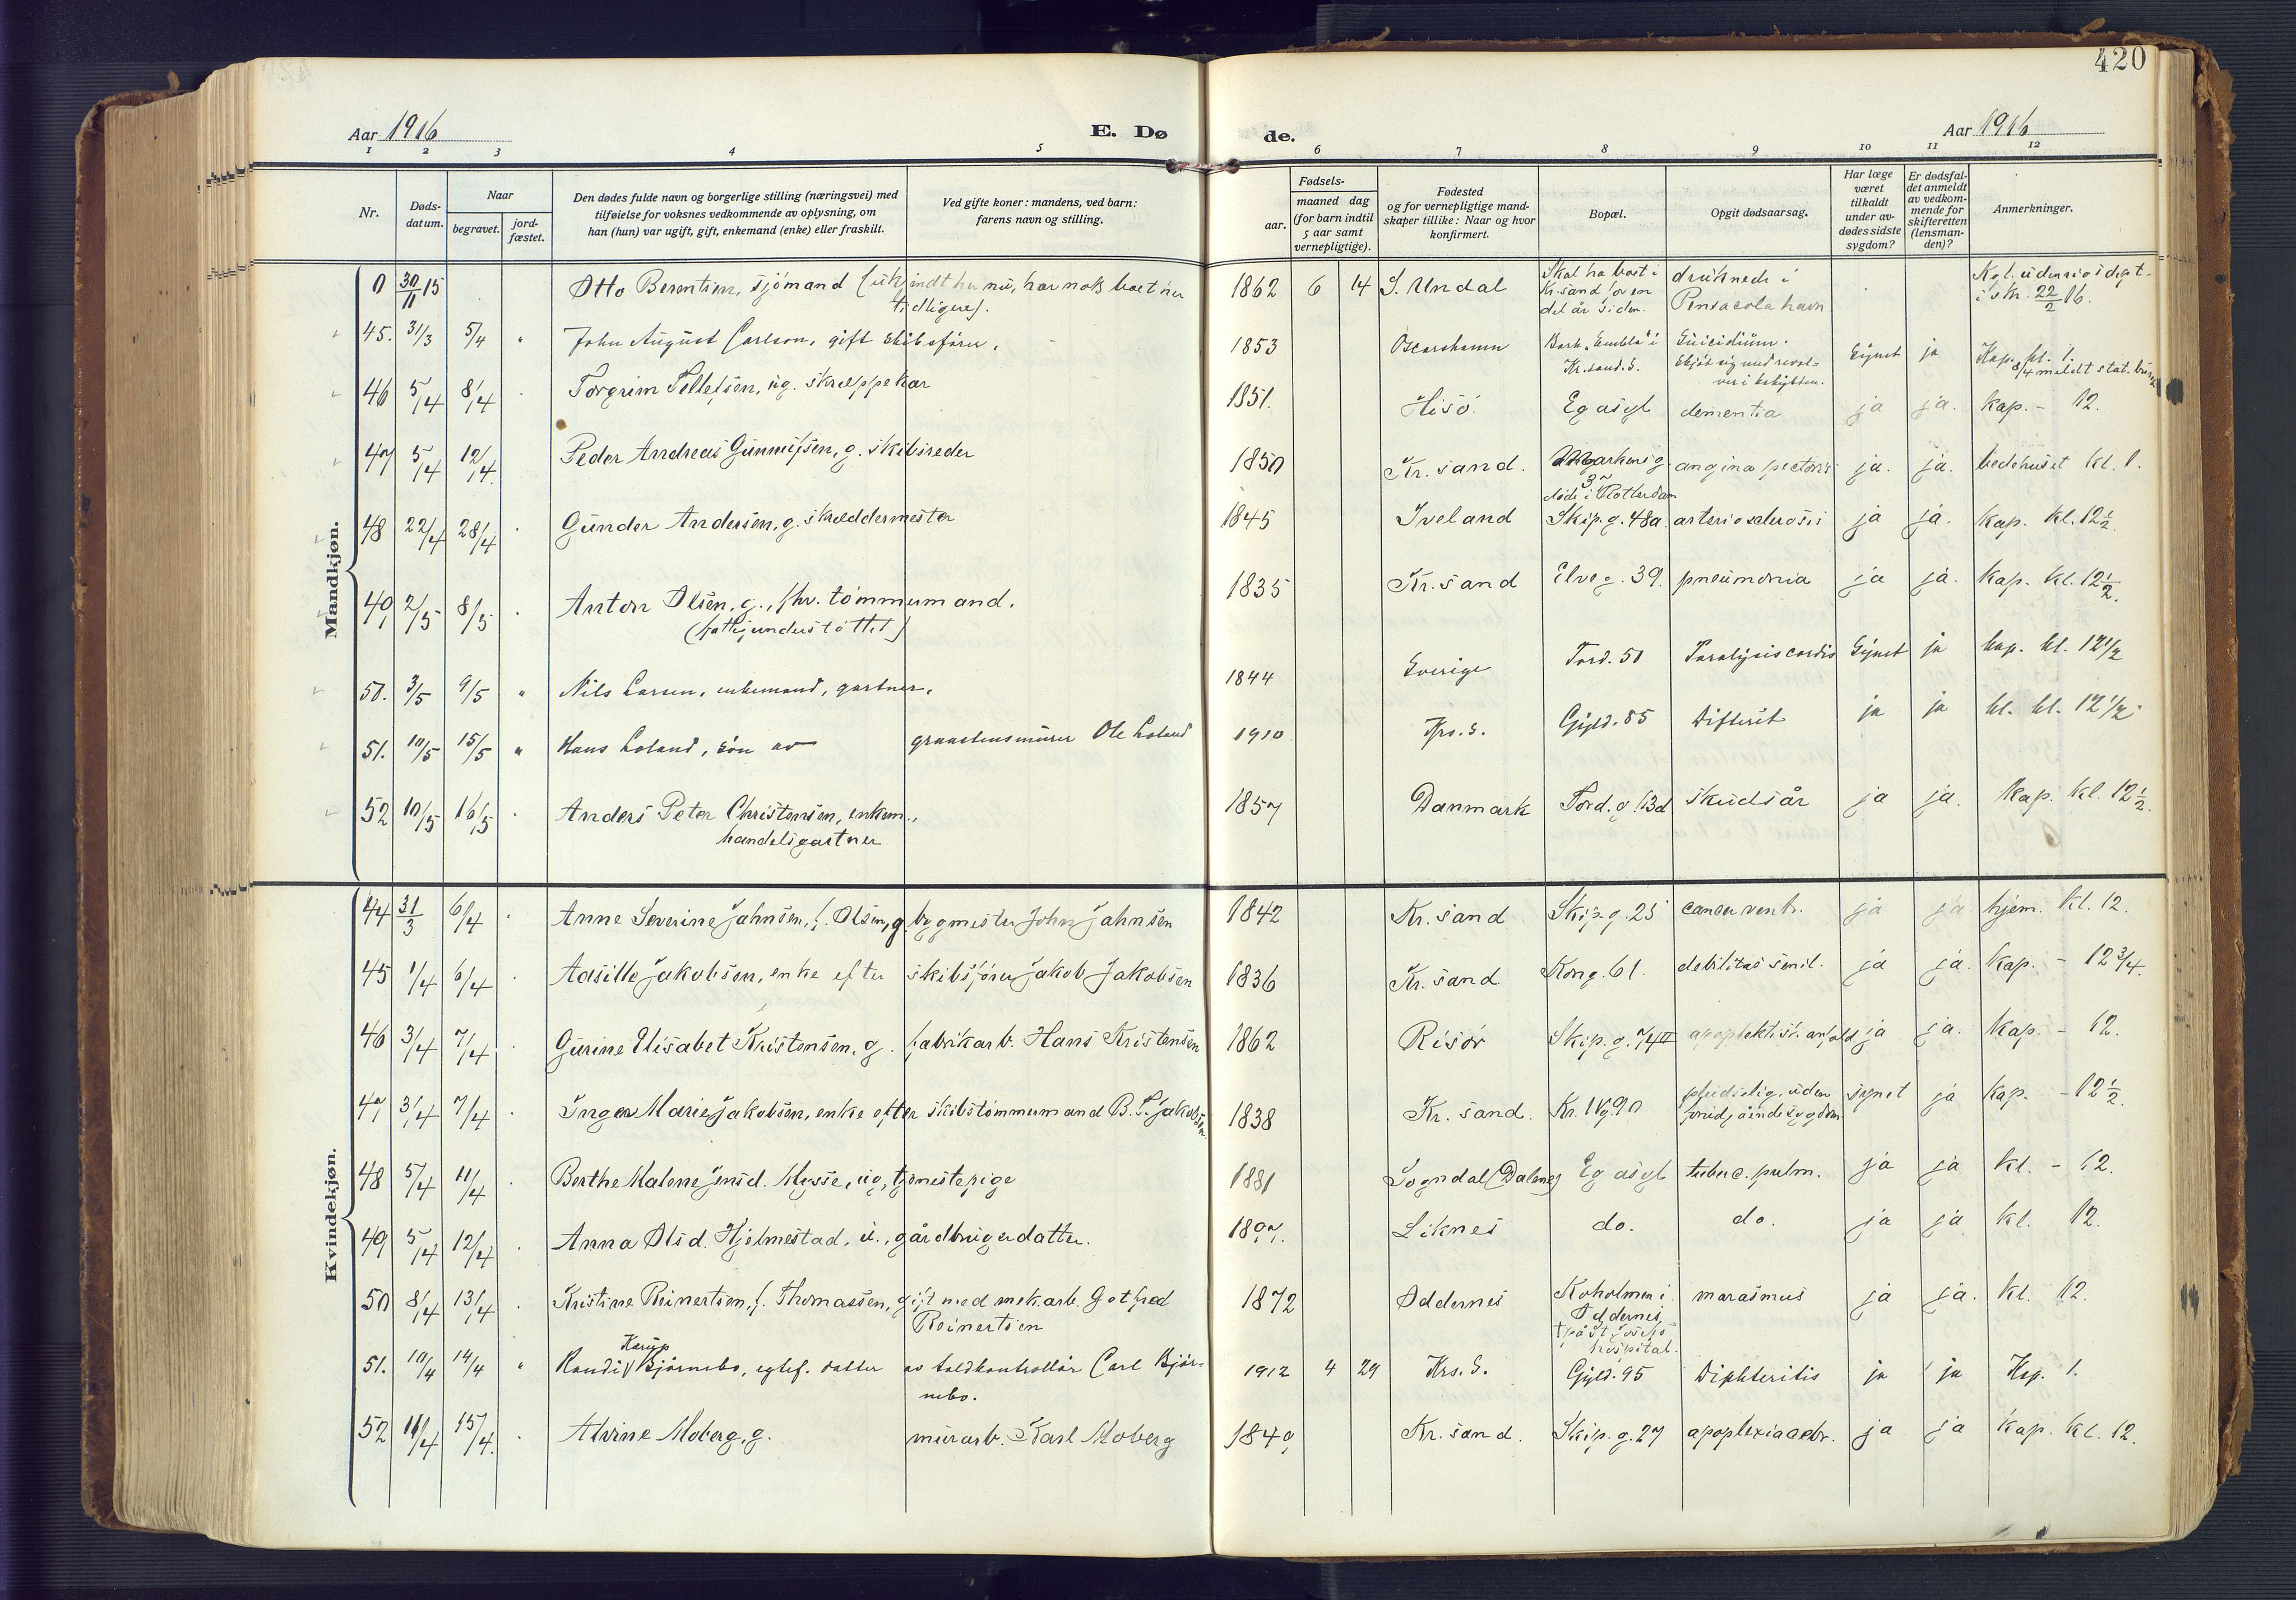 420
Aar 1916 E. Dø de. Aar 1916
1 2 3 4 5 6 7 8 9 10 11 12
Nr.
Døds-
datum.
Naar
begravet.
jord-
fæstet.
Den dødes fulde navn og borgerlige stilling (næringsvei) med
tilføielse for voksnes vedkommende av oplysning, om
han (hun) var ugift, gift, enkemand (enke) eller fraskilt.
Ved gifte koner: mandens, ved barn:
farens navn og stilling.
Fødsels-
aar.
maaned dag
(for barn indtil
5 aar samt
vernepligtige).
Fødested
og for vernepligtige mand-
skaper tillike: Naar og hvor
konfirmert.
Bopæl.
Opgit dødsaarsag.
Har læge
været
tilkaldt
under av-
dødes sidste
sygdom?
Er dødsfal-
det anmeldt
av vedkom-
mende for
skifteretten
(lensman-
den)?
Anmerkninger.
Mandkjøn.
0 30/11 15 Otto Berentsen, sjömand (ukjendt her nu, har nok boet her
tidligere).
1862 6 14 S. Undal Skal ha boet i
Kr.sand for en
del år siden. druknede i
Pensacola havn Kgl. udenrigsdept.
i skr. 22/2 16.
45. 31/3 5/4 " John August Carlson, gift skibsfører. 1853 Oscarshamn Bark "Embla" i
Kr.sand. S. Suicidium.
Skjöt sig med revol-
ver i kahytten. Synet ja Kap. kl. 1.
8/4 meldt stat. bureau
46 5/4 8/4 Torgrim Tellefsen, ug. skræppekar 1851. Hisö. Eg asyl dementia ja ja. kap. - 12.
47 5/4 12/4. Peder Andreas Gunnufsen, g. skibsreder 1850 Kr.sand. Markensg
3
döde i Rotterdam angina pectoris ja. ja. bedehuset kl. 1.
48 22/4 28/4 Gunder Andersen, g. skræddermester 1845 Iveland Skip.g. 48a arteriosclerosis ja ja. kap. kl. 12 1/2.
49 2/5 8/5 Anton Olsen, g., fhv. tömmermand.
(fattigunderstöttet)
1835 Kr.sand Elveg. 39. pneumonia ja ja. kap. kl. 12 1/2.
50. 3/5 9/5 " Nils Larsen, enkemand, gartner. 1844 Sverige Tord. 50 Paralysis cordis Synet ja kap. kl. 12 1/2
51. 10/5 15/5 " Hans Loland, sön av graastensmurer Ole Loland 1910 Krs. S. Gyld. 85 Difterit ja ja kl. kl. 12 1/2.
52 10/5 16/5 Anders Peter Christensen, enkem.,
handelsgartner
1857 Danmark Tord.g 13d skudsår ja ja. Kap. kl. 12 1/2.
Kvindekjøn.
44 31/3 6/4 Anne Severine Jahnsen, f. Olsen, g. bygmester John Jahnsen 1842 Kr.sand Skip.g. 25 cancer ventr. ja ja hjem. kl. 12.
45 1/4 6/4 Aasille Jakobsen, enke efter skibsförer Jakob Jakobsen 1836 Kr. sand Kong. 61. debilitas senil. ja ja. kap. - 12 3/4.
46 3/4 7/4 Gurine Elisabet Kristensen, g. fabrikarb. Hans Kristensen 1862 Risör Skip.g. 74 II apoplektisk anfald ja ja. Kap. - 12.
47 3/4 7/4 Inger Marie Jakobsen, enke efter skibstömmermand B. T. Jakobsen. 1838 Kr. sand. Kr. IVg 90 pludselig, uden
foregående sygdom synet ja kap. - 12 1/2.
48 5/4 11/4 Berthe Malene Jensd. Mysse, ug, tjenestepige 1881 Sogndal (Dalene) Eg asyl tuberc. pulm. ja ja kl. - 12.
49 5/4 12/4 Anna Olsd. Hjelmestad, u., gårdbrugerdatter. 1897. Liknes do. do. ja ja kl. 12.
50 8/4 13/4 Kristine Reinertsen, f. Thomassen, gift med mek.arb. Gotfred
Reinertsen
1872 Oddernes Koholmen i
Oddernes,
† på St. Josefs
hospital. marasmus ja ja. kl. 12.
51. 10/4 14/4 " Randi Karup Björnebo, egtef. datter av toldkontrollör Carl Björ-
nebo.
1912 4 29 Krs. S. Gyld. 95 Diphteritis ja ja Kap. 1.
52 11/4 15/4. Alvine Moberg, g. murarb. Karl Moberg 1849 Kr.sand. Skip.g. 27 apoplexia cebr. ja ja kap. kl. 12.